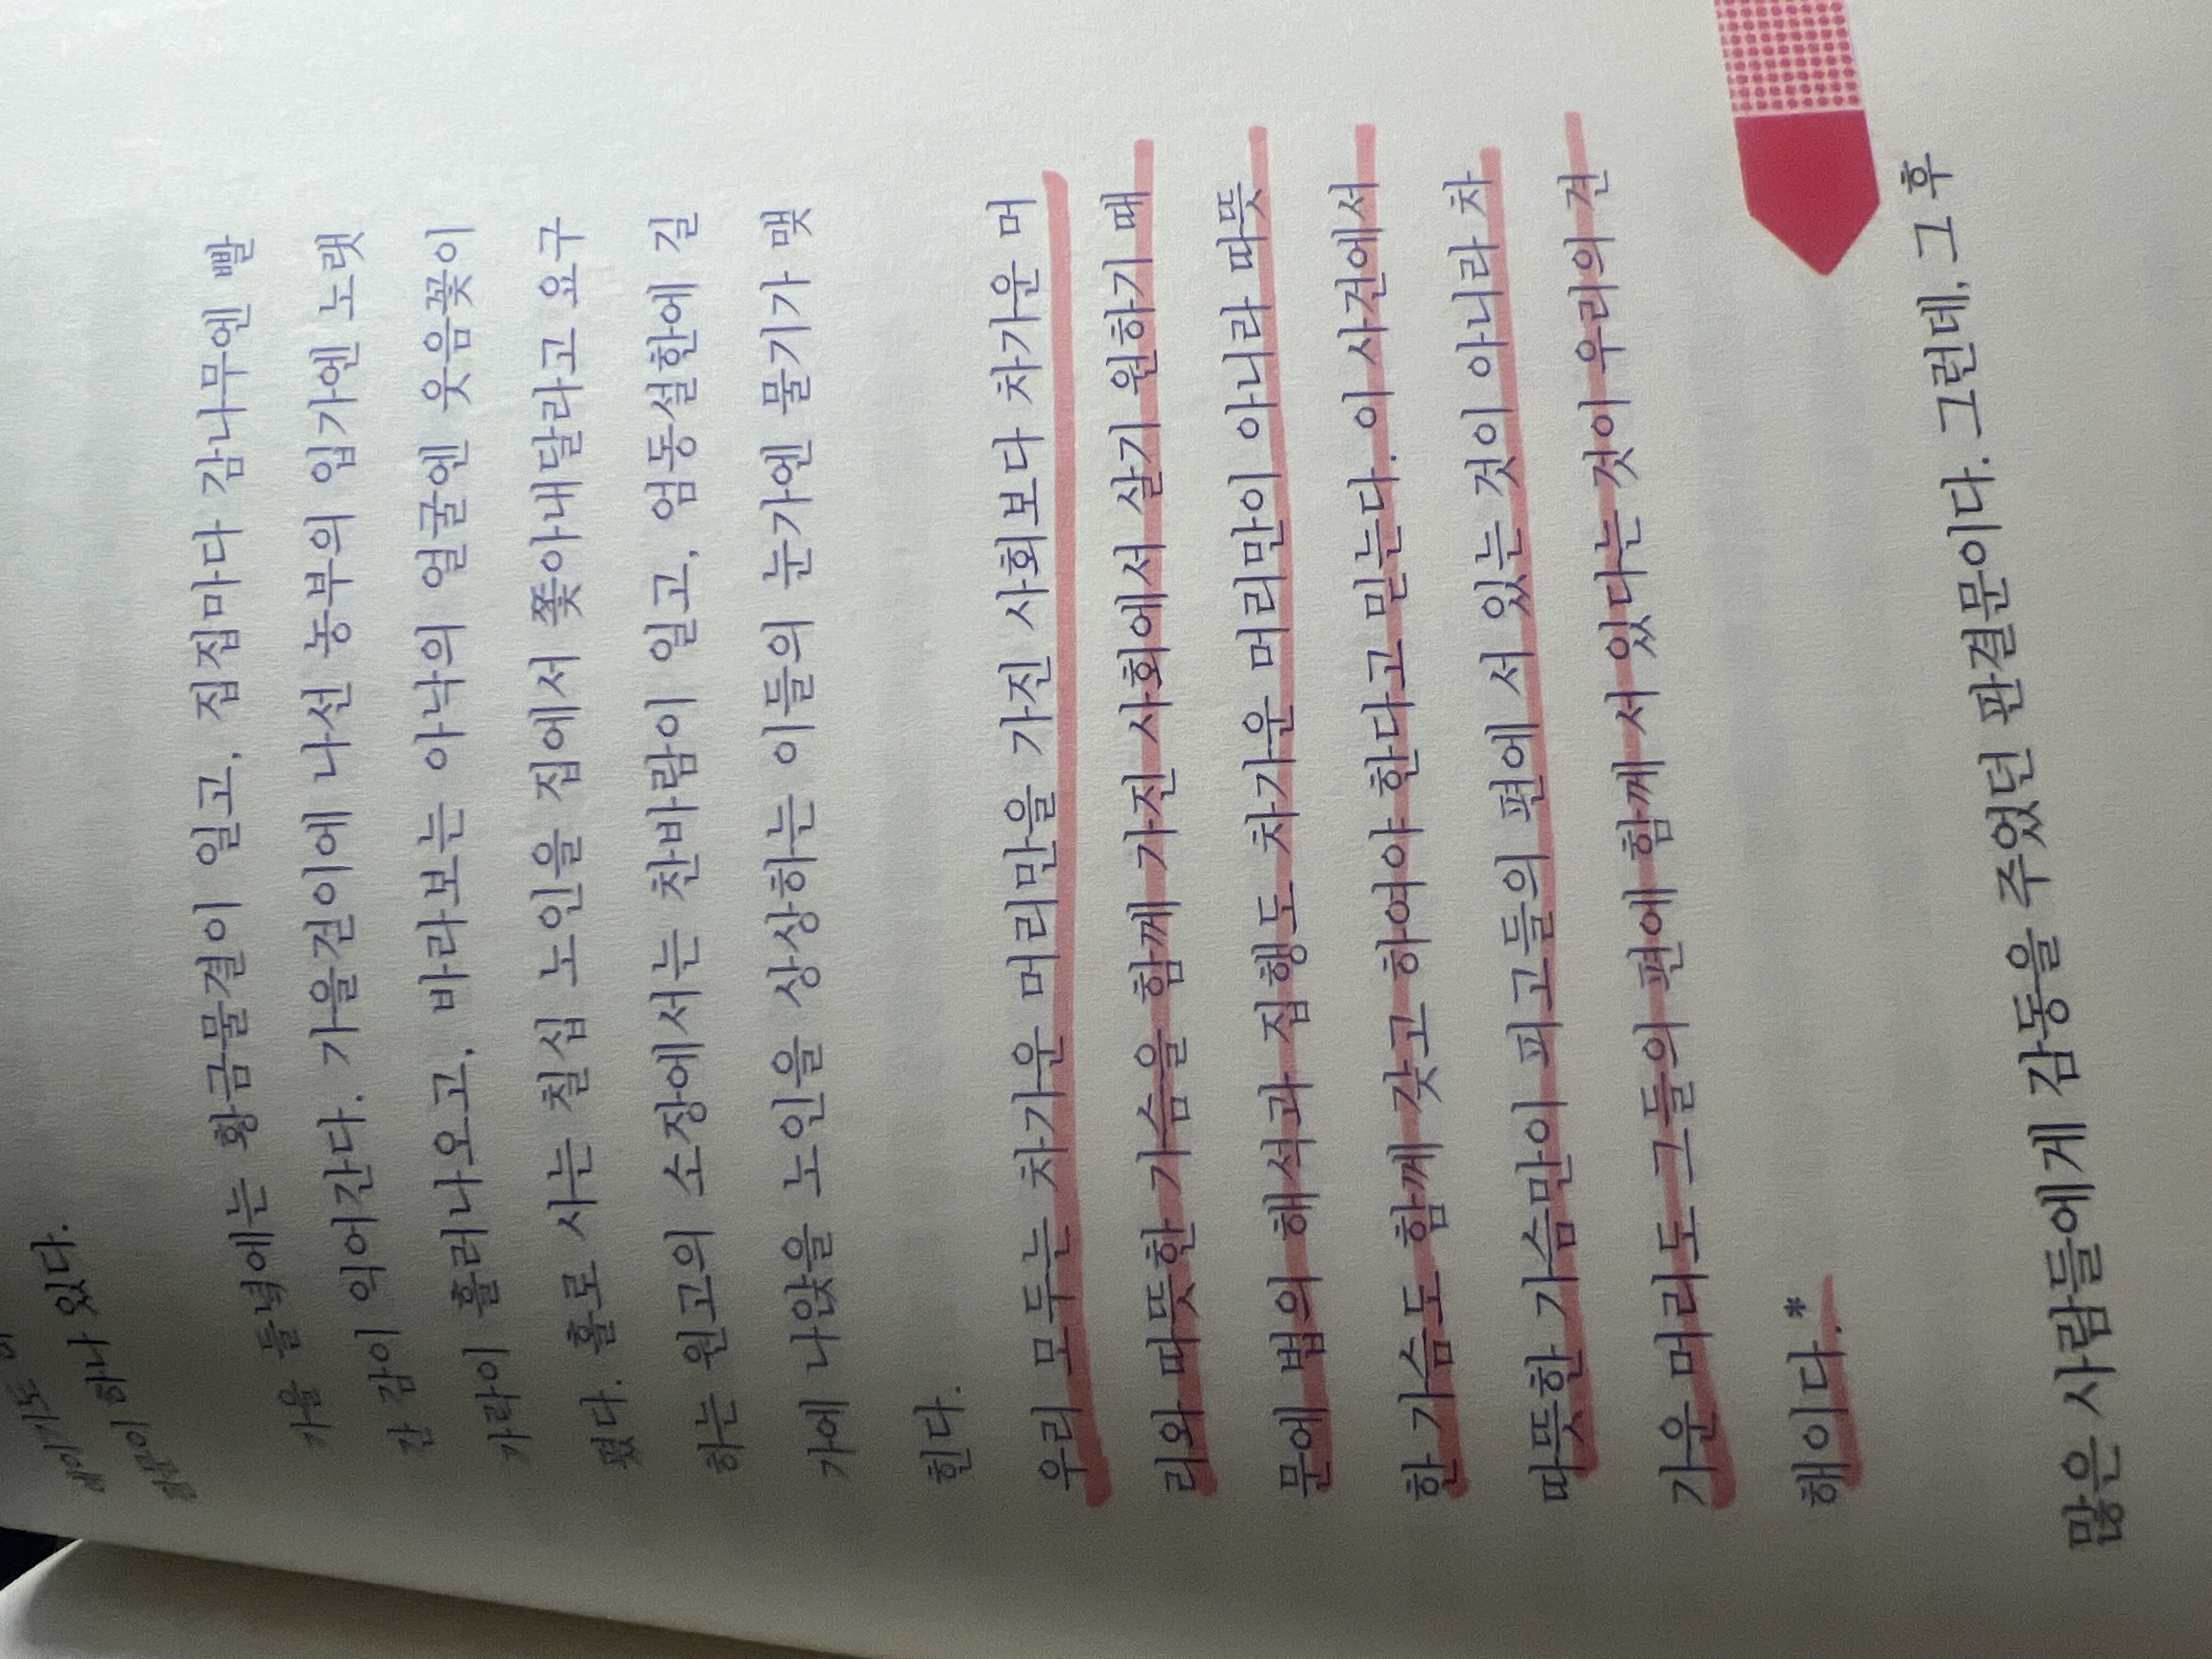 하나 있다.
가을 들녘에는 황금물결이 일고, 집집마다 감나무엔 빨
간 감이 익어간다. 가을걷이에 나선 농부의 입가엔 노랫
가락이 흘러나오고, 바라보는 아낙의 얼굴엔 웃음꽃이
폈다. 홀로 사는 칠십 노인을 집에서 쫓아내달라고 요구
하는 원고의 소장에서는 찬바람이 일고, 엄동설한에 길
가에 나앉을 노인을 상상하는 이들의 눈가엔 물기가 맺
힌다.
우리 모두는 차가운 머리만을 가진 사회보다 차가운 머
리와 따뜻한 가슴을 함께 가진 사회에서 살기 원하기 때
문에 법의 해석과 집행도 차가운 머리만이 아니라 따뜻
한 가슴도 함께 갖고 하여야 한다고 믿는다. 이 사건에서
따뜻한 가슴만이 피고들의 편에 서 있는 것이 아니라 차
가운 머리도 그들의 편에 함께 서 있다는 것이 우리의 견
해이다.*
많은 사람들에게 감동을 주었던 판결문이다. 그런데, 그 후